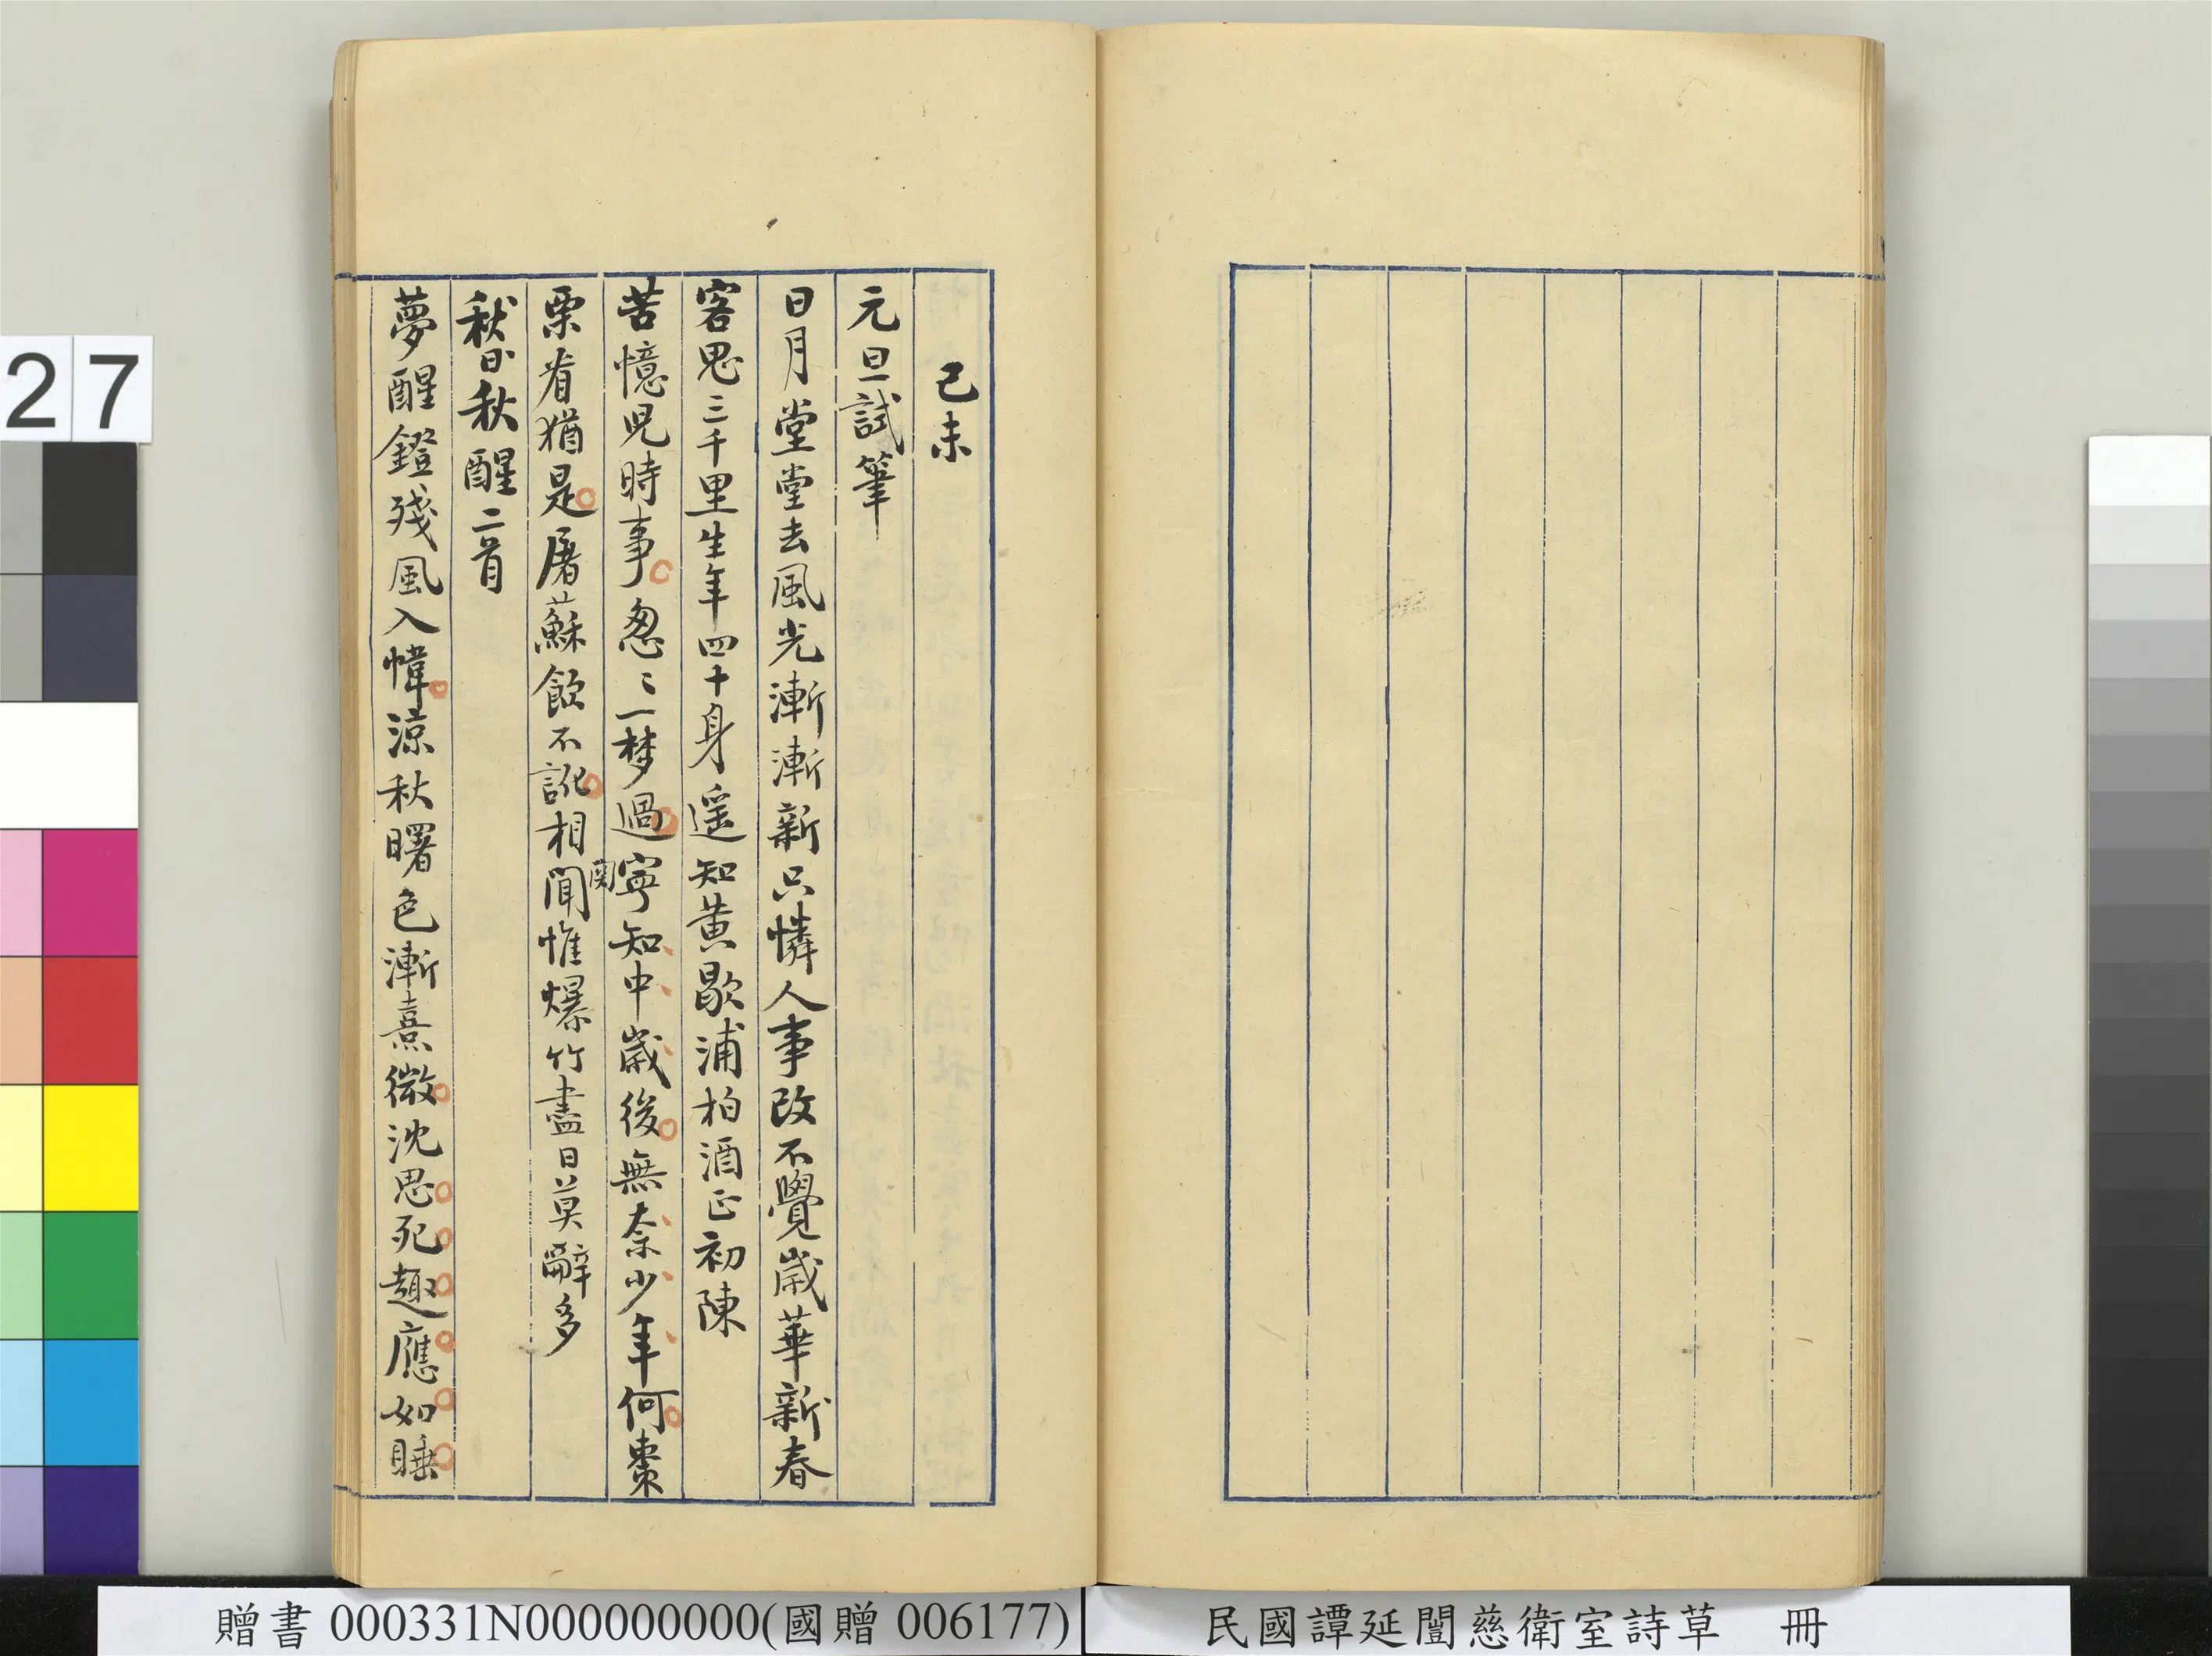 己未
元旦試筆
日月堂堂去風光漸漸新只憐人事改不覺歲華新春
客思三千里生年四十身遥知黃歇浦柏酒正初陳
苦憶兒時事忽〻一夢過寧知中歲後無奈少年何棗
栗看猶是屠蘇飲不訛相聞惟爆竹盡日莫辭多
関
秋日秋醒二首
夢醒鐙殘風入幃涼秋曙色漸熹微沈思死趣應如睡
27
贈書 000331N000000000(國贈 006177)
民國譚延闓慈衛室詩草 冊